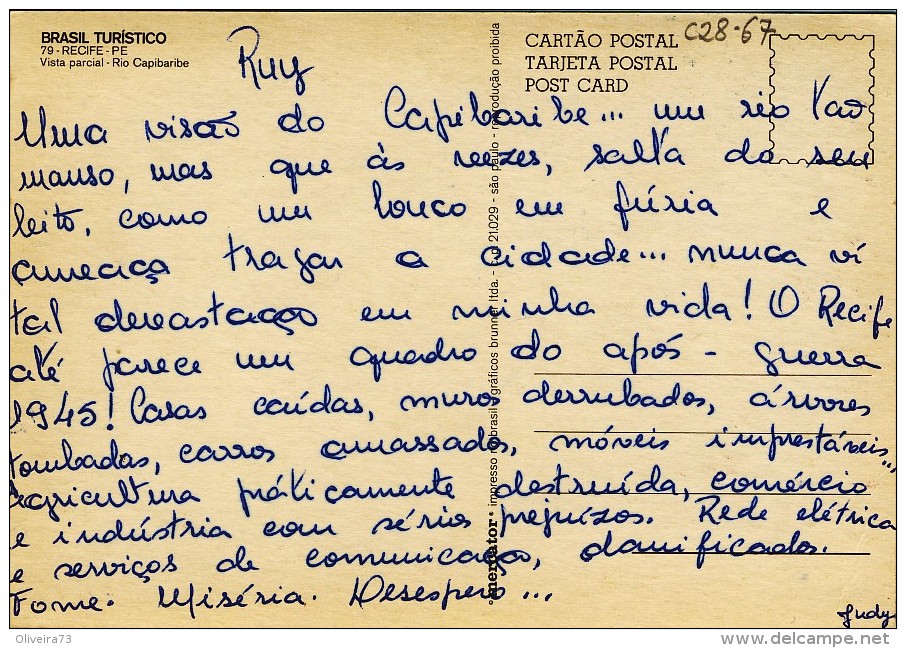 BRASIL TURÍSTICO
79 - RECIFE - PE
Vista parcial - Rio Capibaribe
CARTÃO POSTAL
TARJETA POSTAL
POST CARD
C28-67
Ruy
Uma visão do Capibaribe... um rio tão
manso, mas que às vezes, salta do seu
leito, como um louco em fúria e
ameaça tragar a cidade... nunca vi
tal devastação em minha vida! O Recife
até parece um quadro do após-guerra
1945! Casas caídas, muros derrubados, árvores
tombadas, carros amassados, móveis imprestáveis...
Agricultura práticamente destruída, comércio
e indústria com sérios prejuízos. Rede elétrica
e serviços de comunicação, danificados.
Fome. Miséria. Desespero...
Judy
•mercator• impresso no brasil - gráficos brunner ltda. - 21.029 - são paulo - reprodução proibida
Oliveira73
www.delcampe.net